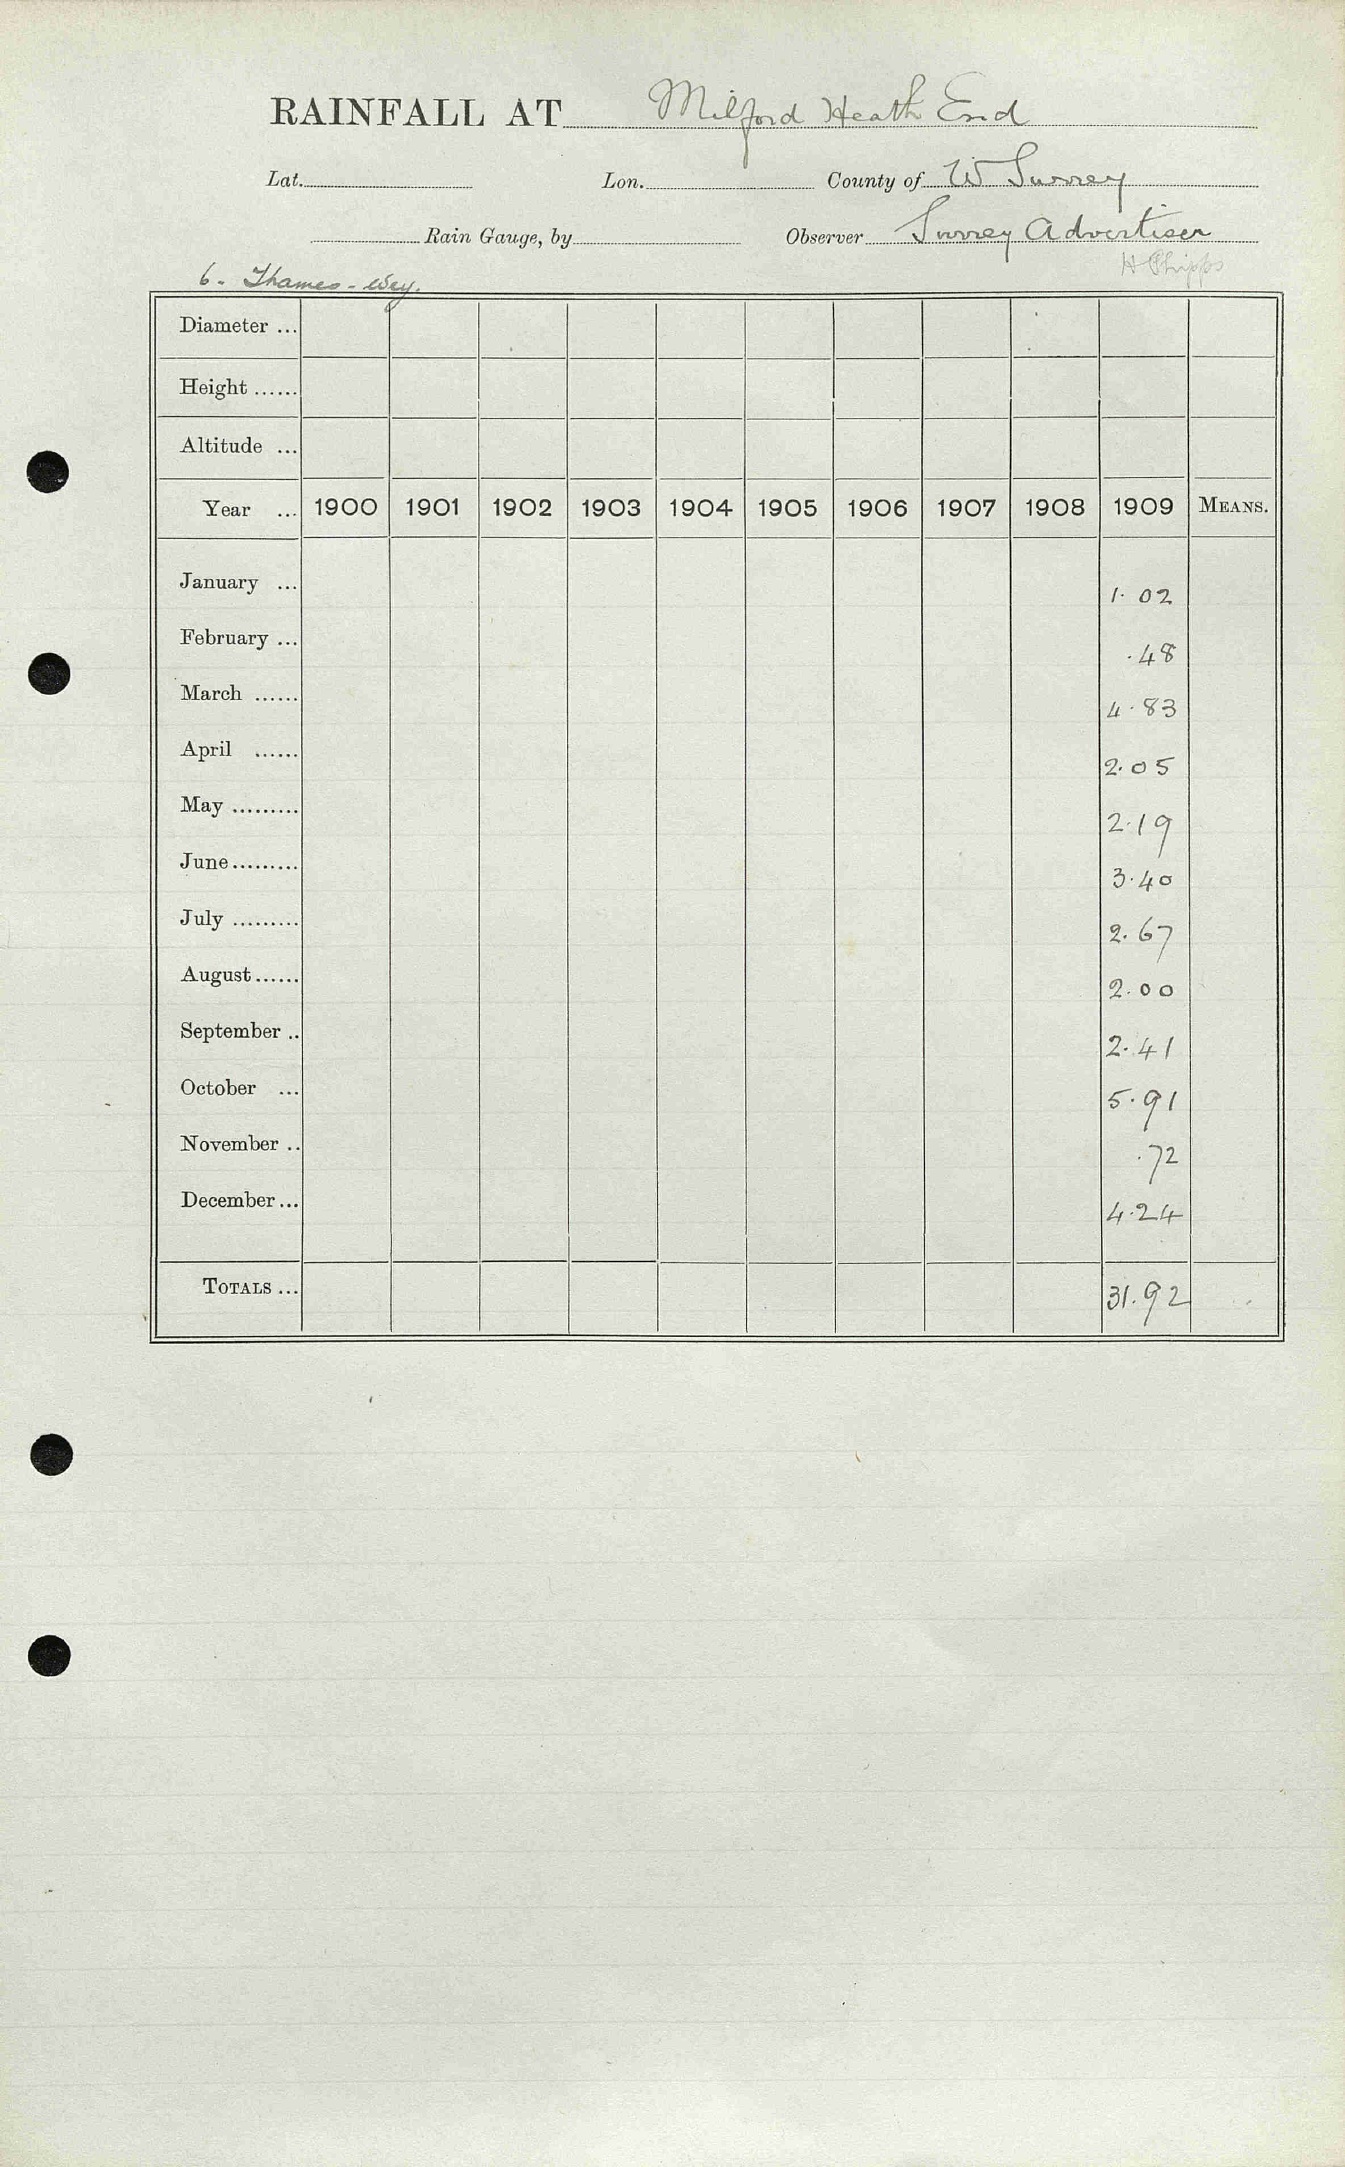 RAINFALL AT Milford Heath End
Lat. Lon. County of W Surrey
Rain Gauge, by Observer Surrey Advertiser
H Phipps
6. Thames - Wey.
Diameter ...
Height ......
Altitude ...
Year ... 1900 1901 1902 1903 1904 1905 1906 1907 1908 1909 MEANS.
January ... 1.02
February ... .48
March ...... 4.83
April ...... 2.05
May ......... 2.19
June......... 3.40
July ......... 2.67
August...... 2.00
September .. 2.41
October ... 5.91
November .. .72
December... 4.24
TOTALS ... 31.92